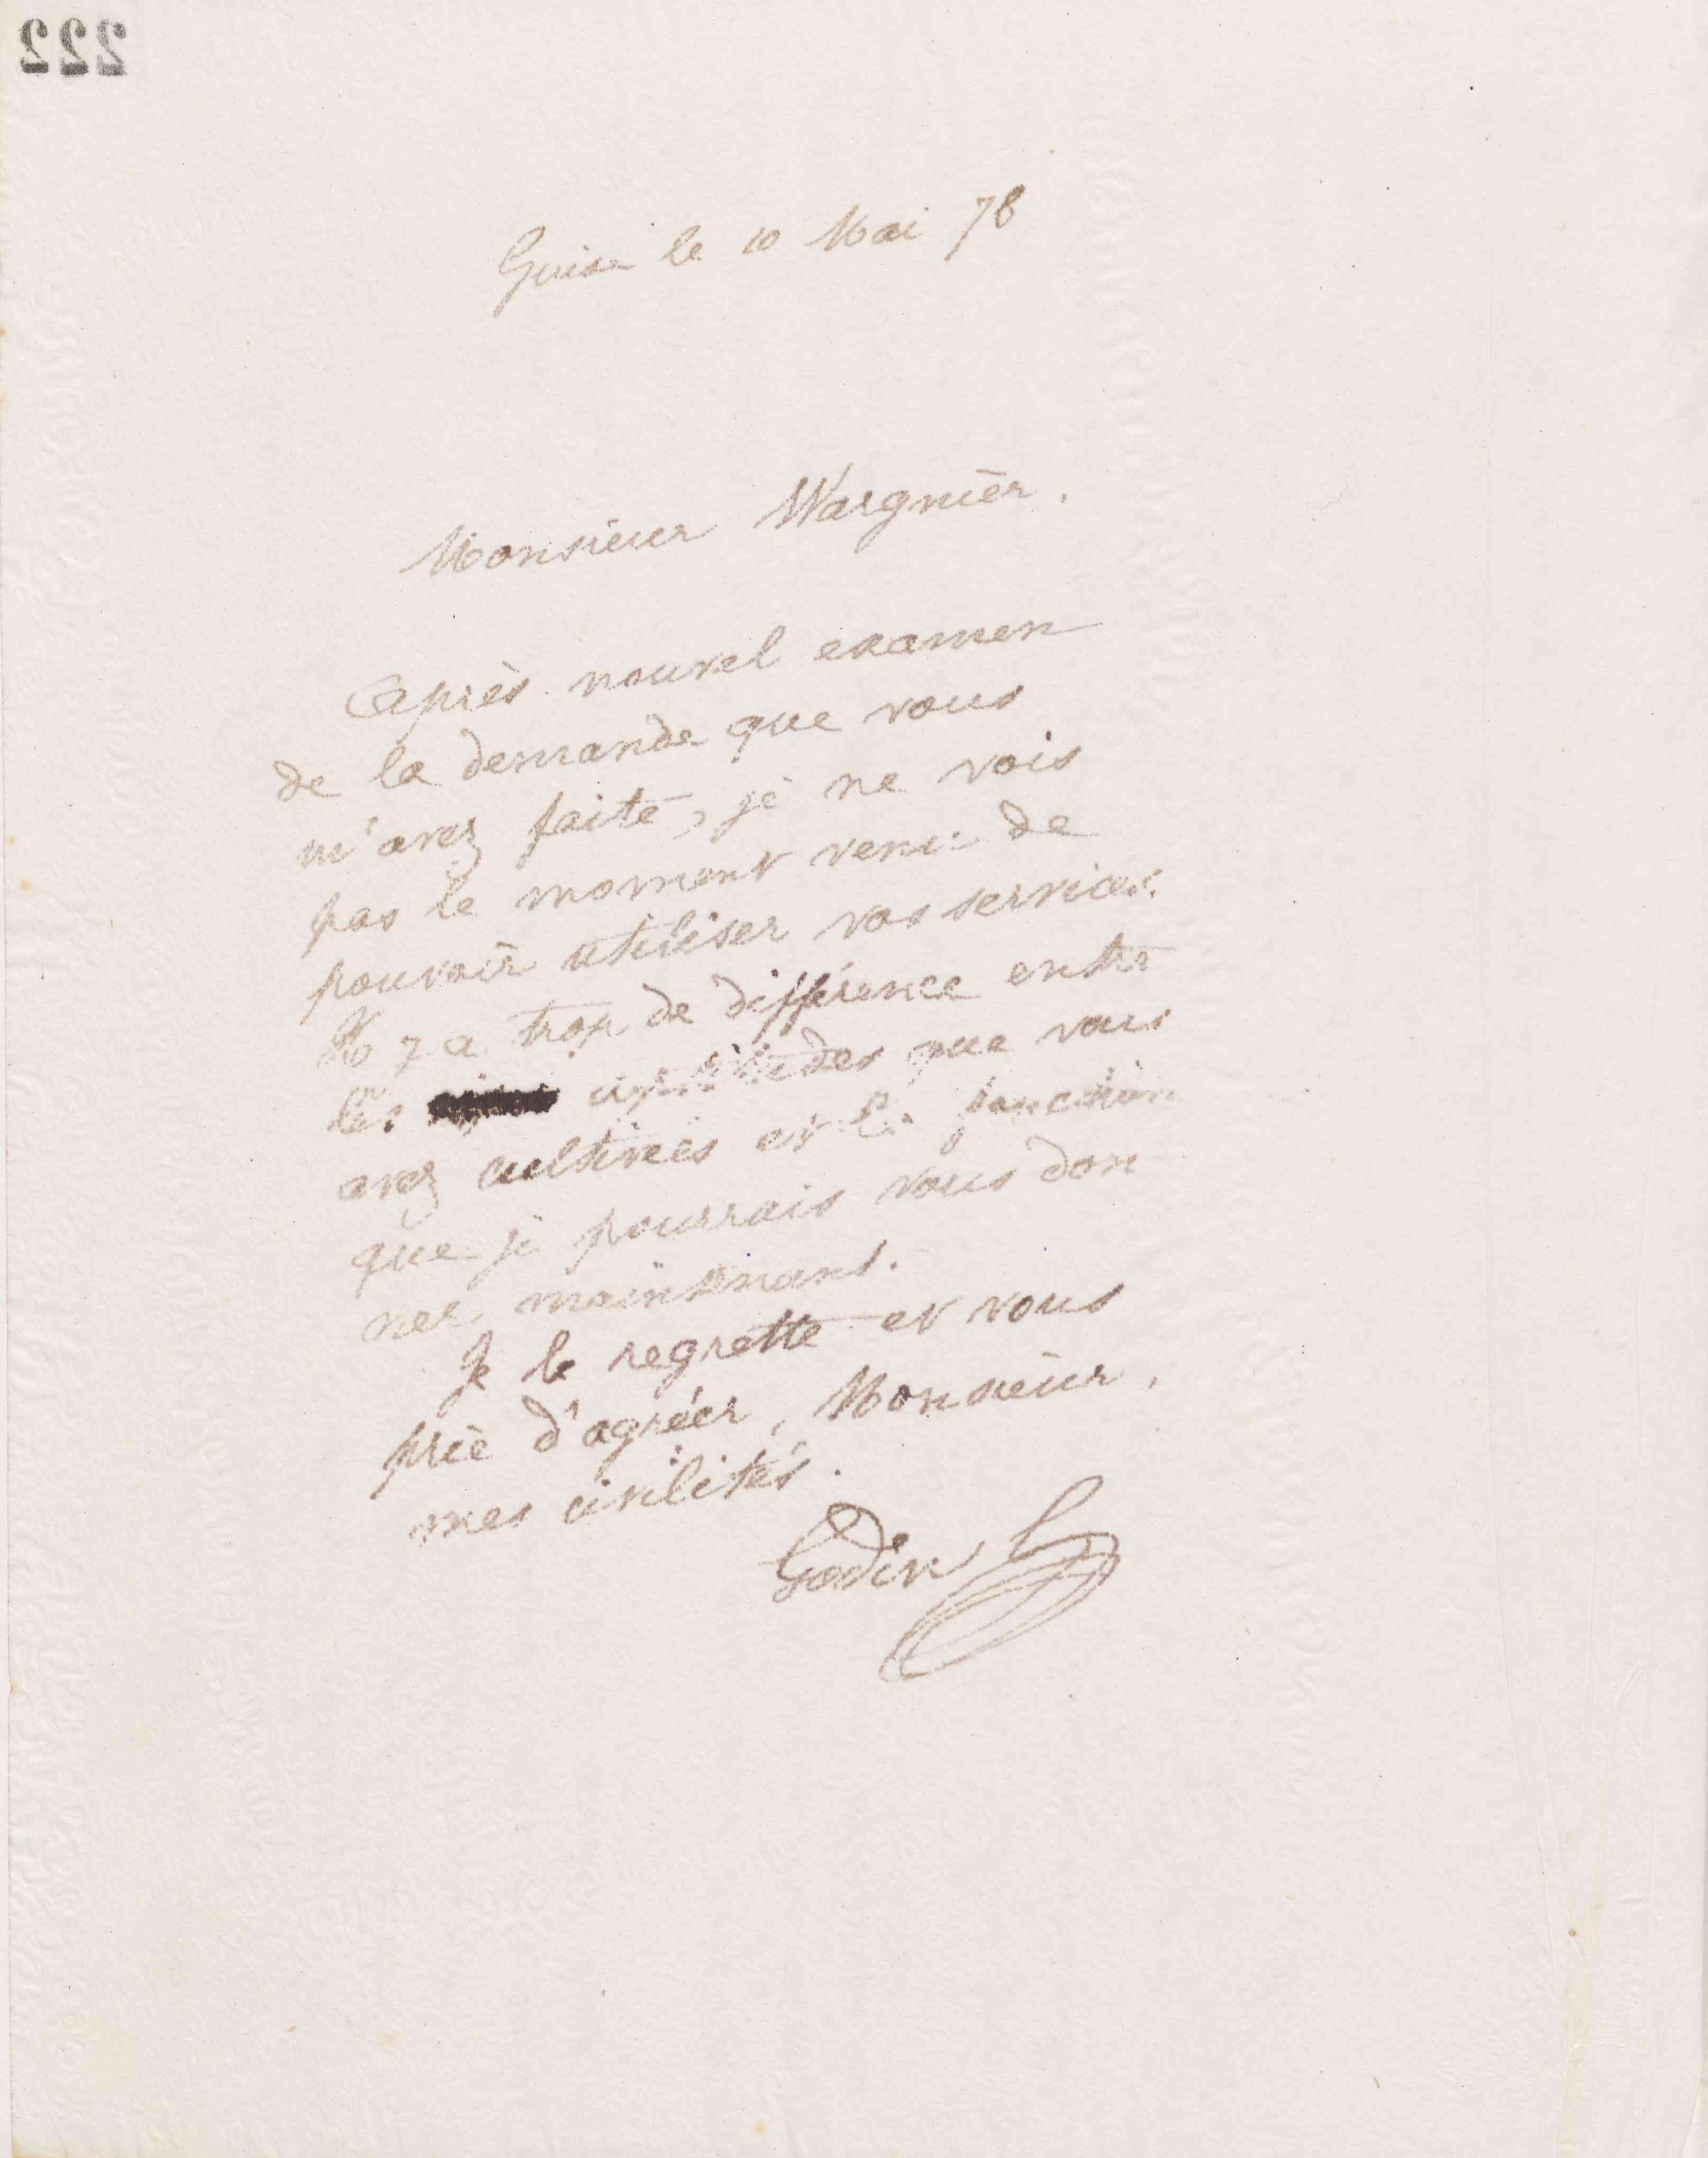 222
Guise le 10 Mai 78
Monsieur Wargnier.
Après nouvel examen
de la demande que vous
m'avez faite, je ne vois
pas le moment venu de
pouvoir utiliser vos services.
Il y a trop de différence entre
les aptitudes que vous
avez cultivées et la fonction
que je pourrais vous don
ner maintenant.
Je le regrette et vous
prie d'agréer, Monsieur,
mes civilités.
Godin